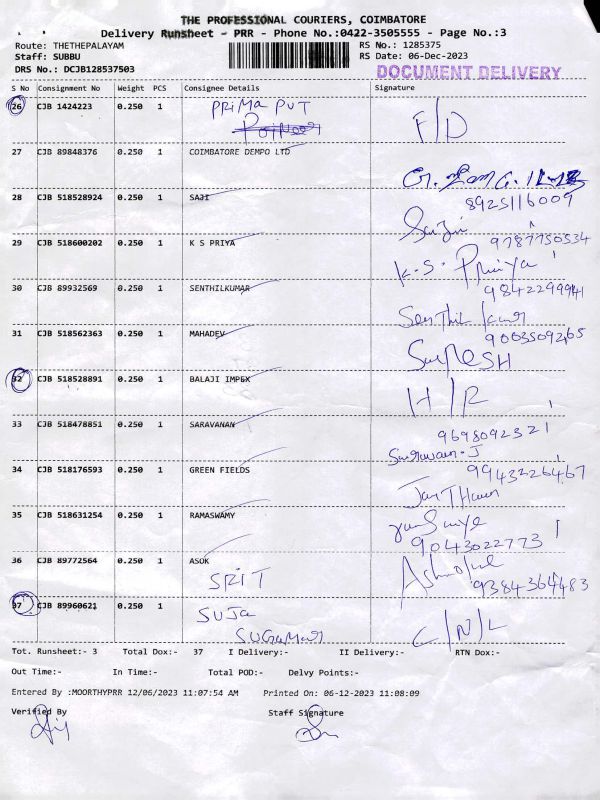 THE PROFESSIONAL COURIERS, COIMBATORE
Delivery Runsheet - PRR - Phone No.:0422-3505555 - Page No.:3
Route: THETHEPALAYAM RS No.: 1285375
Staff: SUBBU RS Date: 06-Dec-2023
DRS No.: DCJB128537503 DOCUMENT DELIVERY
S No Consignment No Weight PCS Consignee Details Signature
26 CJB 1424223 0.250 1 PRIMA PUT F/D
27 CJB 89848376 0.250 1 COIMBATORE DEMPO LTD
8925116009
28 CJB 518528924 0.250 1 SAJI
9787750534
29 CJB 518600202 0.250 1 K S PRIYA K.S. Priya
9842299941
30 CJB 89932569 0.250 1 SENTHILKUMAR Senthil
9003509265
31 CJB 518562363 0.250 1 MAHADEV SURESH
32 CJB 518528891 0.250 1 BALAJI IMPEX H/R
33 CJB 518478851 0.250 1 SARAVANAN 9698092321
Saravanan.J
34 CJB 518176593 0.250 1 GREEN FIELDS 9943226467
35 CJB 518631254 0.250 1 RAMASWAMY
9043022773
36 CJB 89772564 0.250 1 ASOK
SRIT 9384364483
37 CJB 89960621 0.250 1 SUJA C/N/L
SUGUMAR
Tot. Runsheet:- 3 Total Dox:- 37 I Delivery:- II Delivery:- RTN Dox:-
Out Time:- In Time:- Total POD:- Delvy Points:-
Entered By :MOORTHYPRR 12/06/2023 11:07:54 AM Printed On: 06-12-2023 11:08:09
Verified By Staff Signature